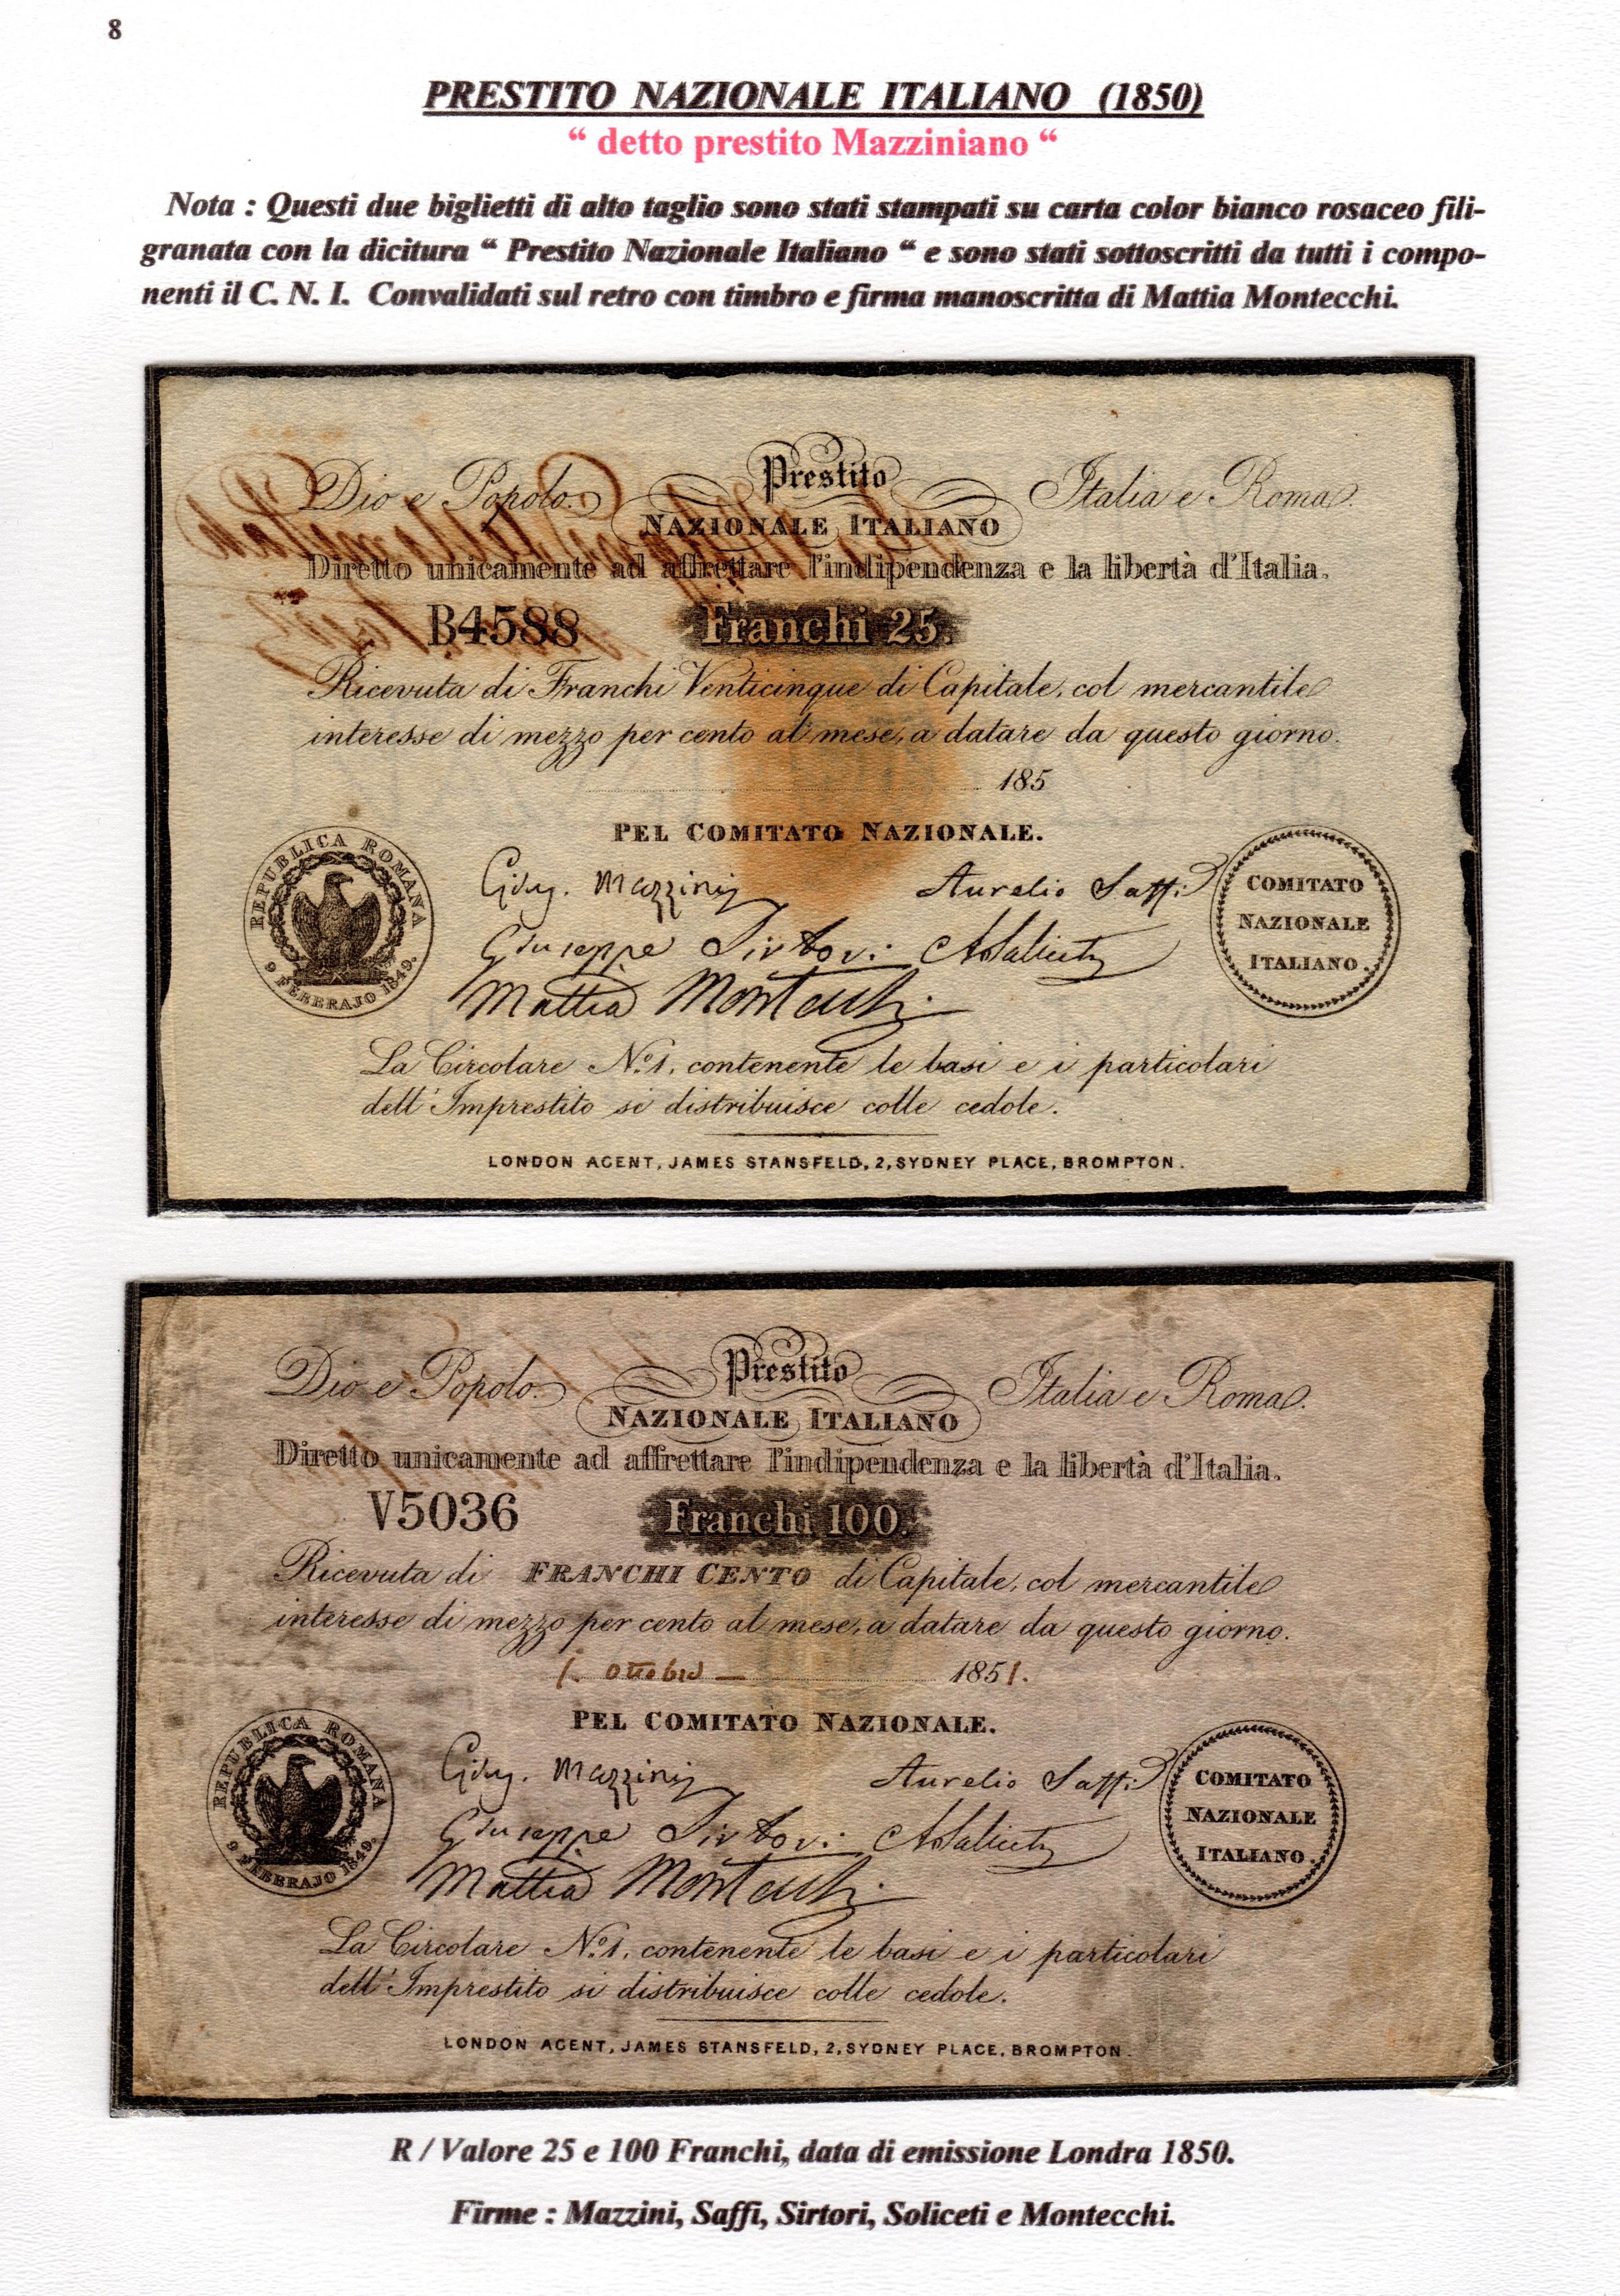 8
PRESTITO NAZIONALE ITALIANO (1850)
“ detto prestito Mazziniano “
Nota : Questi due biglietti di alto taglio sono stati stampati su carta color bianco rosaceo fili-
granata con la dicitura “ Prestito Nazionale Italiano “ e sono stati sottoscritti da tutti i compo-
nenti il C. N. I. Convalidati sul retro con timbro e firma manoscritta di Mattia Montecchi.
Dio e Popolo. Prestito Italia e Roma.
NAZIONALE ITALIANO
Diretto unicamente ad affrettare l'indipendenza e la libertà d'Italia.
B4588 Franchi 25.
Ricevuta di Franchi Venticinque di Capitale, col mercantile
interesse di mezzo per cento al mese, a datare da questo giorno.
185
PEL COMITATO NAZIONALE.
REPUBLICA ROMANA
9 FEBBRAJO 1849.
Gius. Mazzini Aurelio Saffi
Giuseppe Sirtori ASaliceti
Mattia Montecchi.
COMITATO
NAZIONALE
ITALIANO.
La Circolare No. 1, contenente le basi e i particolari
dell'Imprestito si distribuisce colle cedole.
LONDON AGENT, JAMES STANSFELD, 2, SYDNEY PLACE, BROMPTON.
Dio e Popolo. Prestito Italia e Roma.
NAZIONALE ITALIANO
Diretto unicamente ad affrettare l'indipendenza e la libertà d'Italia.
V5036 Franchi 100.
Ricevuta di FRANCHI CENTO di Capitale, col mercantile
interesse di mezzo per cento al mese, a datare da questo giorno.
1. ottobre — 1851.
PEL COMITATO NAZIONALE.
REPUBLICA ROMANA
9 FEBBRAJO 1849.
Gius. Mazzini Aurelio Saffi
Giuseppe Sirtori ASaliceti
Mattia Montecchi.
COMITATO
NAZIONALE
ITALIANO.
La Circolare No. 1, contenente le basi e i particolari
dell'Imprestito si distribuisce colle cedole.
LONDON AGENT, JAMES STANSFELD, 2, SYDNEY PLACE, BROMPTON.
R / Valore 25 e 100 Franchi, data di emissione Londra 1850.
Firme : Mazzini, Saffi, Sirtori, Soliceti e Montecchi.